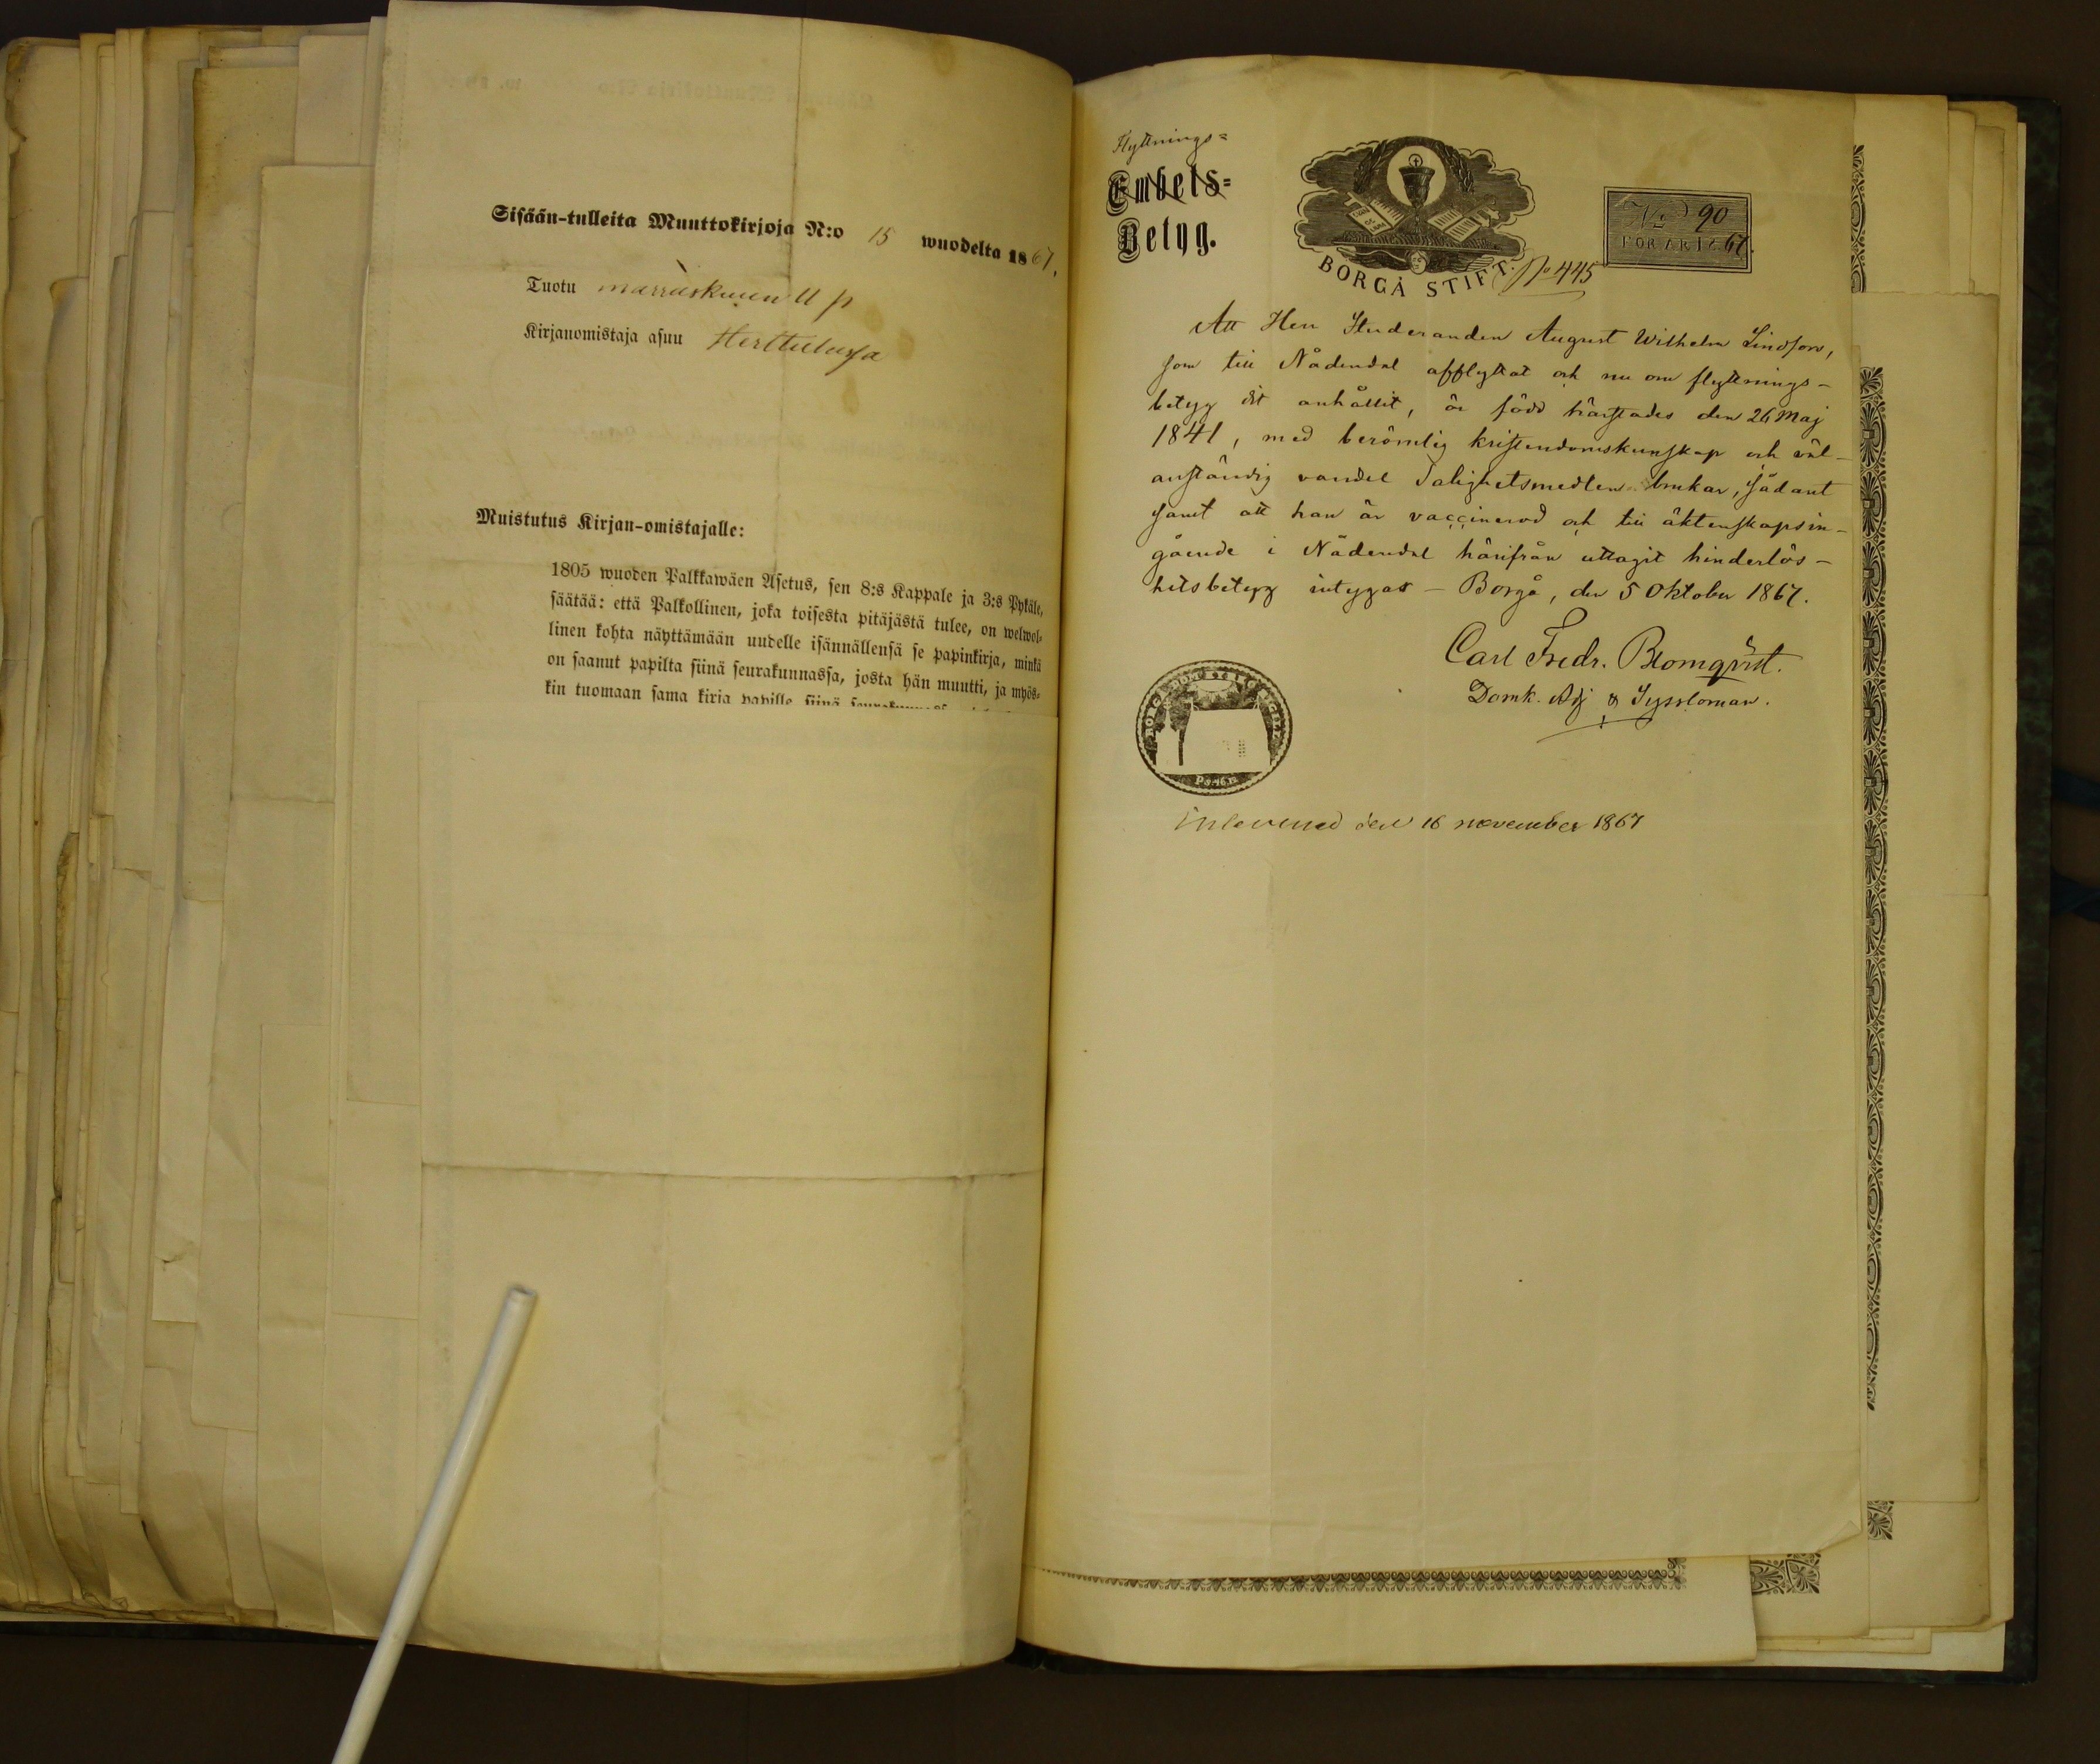 Sisään-tulleita Muuttokirjoja N:o 15 wuodelta 1867.
Tuotu marraskuun 11 p
Kirjanomistaja asuu Herttulassa
Muistutus Kirjan-omistajalle:
1805 wuoden Palkkawäen Asetus, sen 8:s Kappale ja 3:s Pykäle,
säätää: että Palkollinen, joka toisesta pitäjästä tulee, on welwol-
linen kohta näyttämään uudelle isännällensä se papinkirja, minkä
on saanut papilta siinä seurakunnassa, josta hän muutti, ja myös-
kin tuomaan sama kirja papille siinä
Flyttnings=
Embets=
Betyg.
BORGÅ STIFT.
No 445
No 90
FÖR ÅR 1867.
Att Herr Studeranden August Wilhelm Lindfors,
som till Nådendal afflyttat och nu om flyttnings-
betyg dit anhållit, är född härstädes den 26 Maj
1841, med berömlig kristendomskunskap och väl-
anständig vandel Salighetsmedlen brukar, sådant
samt att han är vaccinerad och till äktenskapsin-
gående i Nådendal härifrån uttagit hinderlös-
hetsbetyg intygas - Borgå, den 5 Oktober 1867.
Carl Fredr. Blomqvist.
Domk. Adj & Syssloman.
inlevererad den 16 november 1867